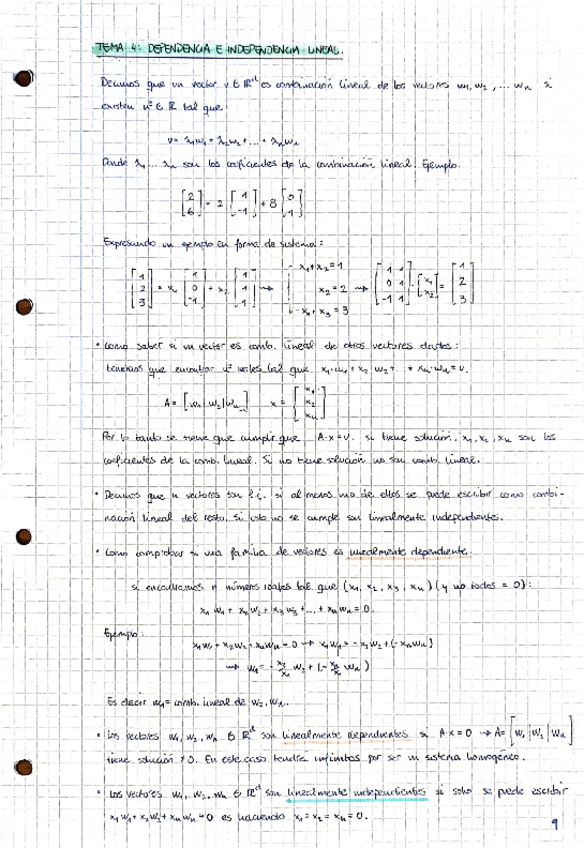 TEMA 4: DEPENDENCIA E INDEPENDENCIA LINEAL.
Decimos que un vector v ∈ ℝᵈ es combinación lineal de los vectores w₁, w₂, ... wₙ si
existen nº ∈ ℝ tal que:
v = λ₁w₁ + λ₂w₂ + ... + λₙwₙ
Donde λ₁ ... λₙ son los coeficientes de la combinación lineal. Ejemplo:
[2 6] = 2 [1 -1] + 8 [0 1]
Expresando un ejemplo en forma de sistema:
[1 2 3] = x₁ [1 0 -1] + x₂ [1 1 1] → { x₁ + x₂ = 1
x₂ = 2 → [1 1 0 1 -1 1] · [x₁ x₂] = [1 2 3]
- x₁ + x₃ = 3
• Como saber si un vector es comb. lineal de otros vectores dados:
tendríamos que encontrar nº reales tal que x₁·w₁ + x₂·w₂ + + xₙ·wₙ = v.
A = [w₁|w₂|wₙ] x = [x₁ x₂ xₙ]
Por lo tanto se tiene que cumplir que A·x = v. si tiene solución, x₁, x₂, xₙ son los
coeficientes de la comb. lineal. Si no tiene solución no son comb. lineal.
• Decimos que n vectores son l.c. si al menos uno de ellos se puede escribir como combi-
nación lineal del resto. Si esto no se cumple son linealmente independiente.
• Como comprobar si una familia de vectores es linealmente dependiente.
si encontramos n números reales tal que (x₁, x₂, x₃, xₙ) (y no todos = 0):
x₁w₁ + x₂w₂ + x₃w₃ + ... + xₙwₙ = 0.
Ejemplo:
x₁w₁ + x₂w₂ + xₙwₙ = 0 → x₁w₁ = -x₂w₂ + (-xₙwₙ)
→ w₁ = -x₂/x₁ w₂ + (-xₙ/x₁ wₙ)
Es decir w₁ = comb. lineal de w₂, wₙ.
• Los vectores w₁, w₂, wₙ ∈ ℝᵈ son linealmente dependientes si A·x = 0 → A = [w₁|w₂|wₙ]
tiene solución ≠ 0. En este caso tendría infinitas por ser un sistema homogéneo.
• Los vectores w₁, w₂, wₙ ∈ ℝᵈ son linealmente independientes si solo se puede escribir
x₁w₁ + x₂w₂ + xₙwₙ = 0 es haciendo x₁ = x₂ = xₙ = 0.
9